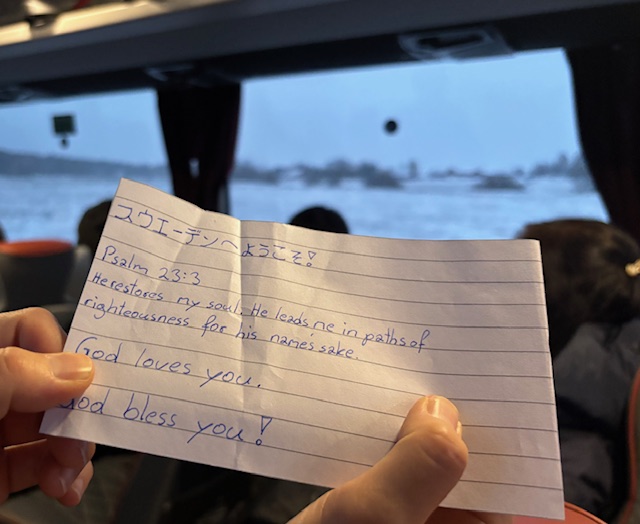 スウエーデンへようこそ!
Psalm 23:3
He restores my soul. He leads me in paths of
righteousness for his name's sake.
God loves you.
God bless you!